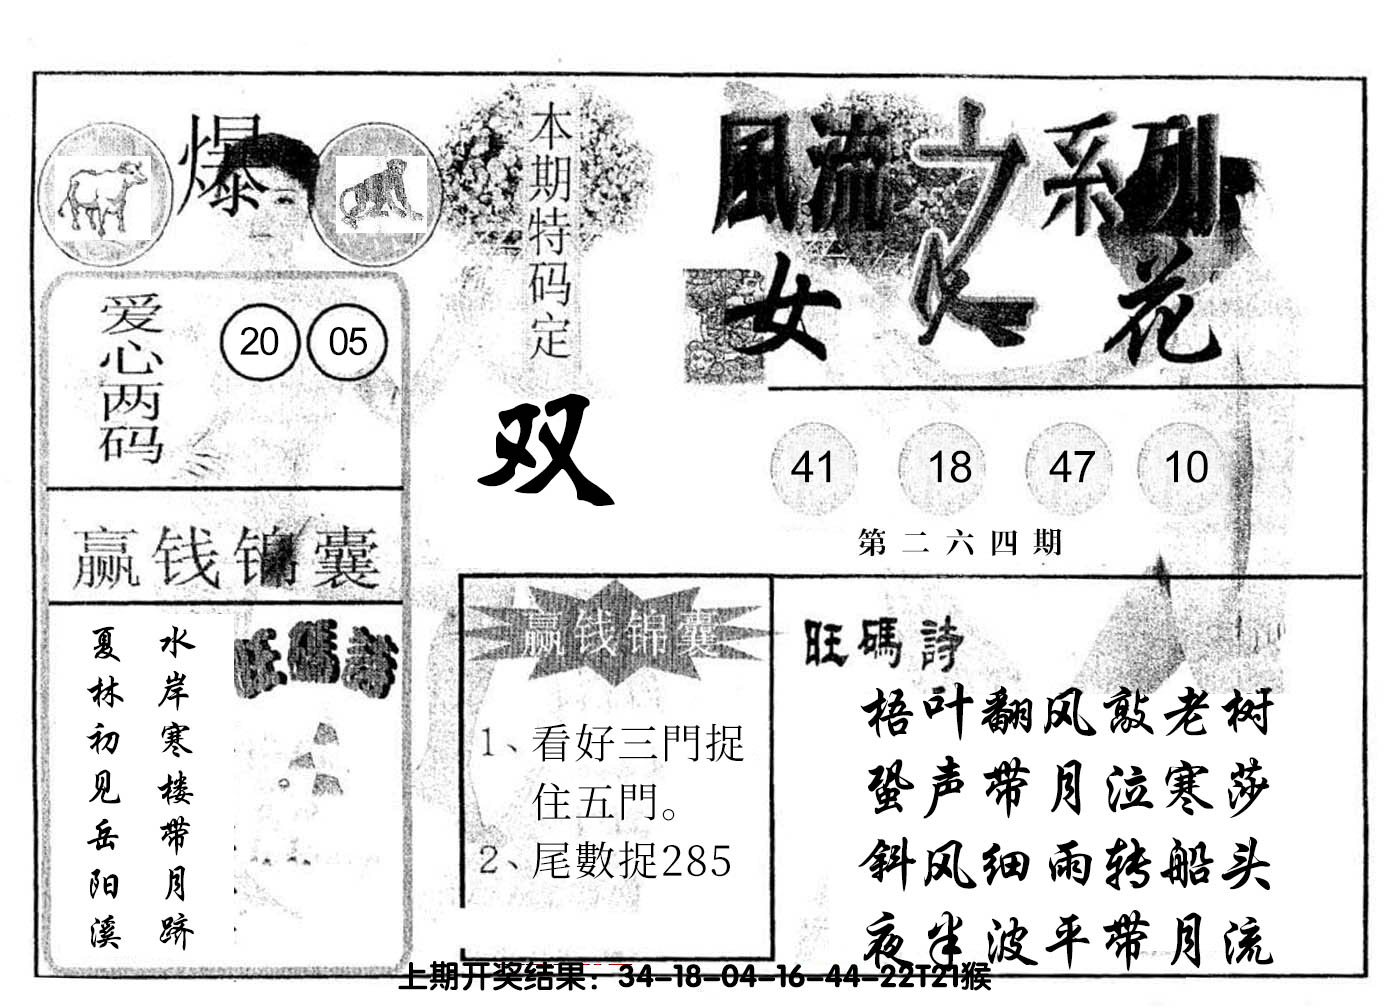 爆
本期特码定
双
風流之系列
女人花
爱心两码
20 05
41 18 47 10
第二六四期
赢钱锦囊
水岸寒楼带月跻
夏林初见岳阳溪
旺碼詩
赢钱锦囊
1、看好三門捉
住五門。
2、尾數捉285
旺碼詩
梧叶翻风敲老树
蛩声带月泣寒莎
斜风细雨转船头
夜半波平带月流
上期开奖结果：34-18-04-16-44-22T21猴